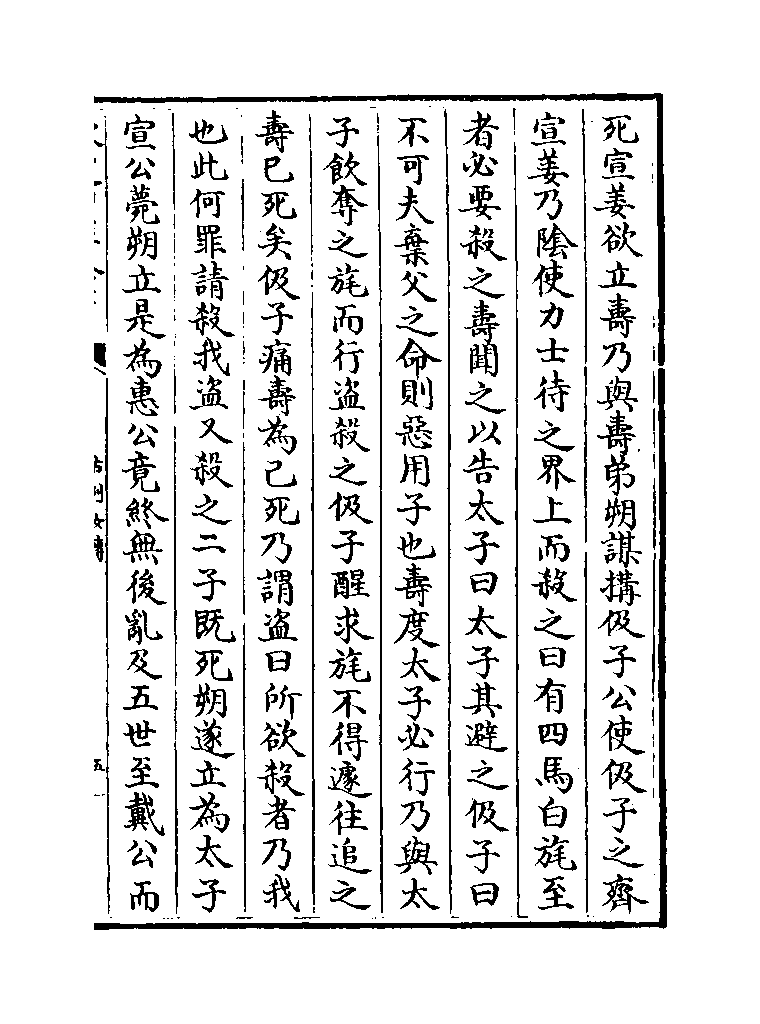 死宣姜欲立壽乃與壽弟朔謀搆伋子公使伋子之齊
宣姜乃陰使力士待之界上而殺之曰有四馬白旄至
者必要殺之壽聞之以告太子曰太子其避之伋子曰
不可夫棄父之命則惡用子也壽度太子必行乃與太
子飲奪之旄而行盗殺之伋子醒求旄不得遽往追之
壽已死矣伋子痛壽為己死乃謂盗曰所欲殺者乃我
也此何罪請殺我盗又殺之二子既死朔遂立為太子
宣公薨朔立是為惠公竟終無後亂及五世至戴公而
古列女傳
五